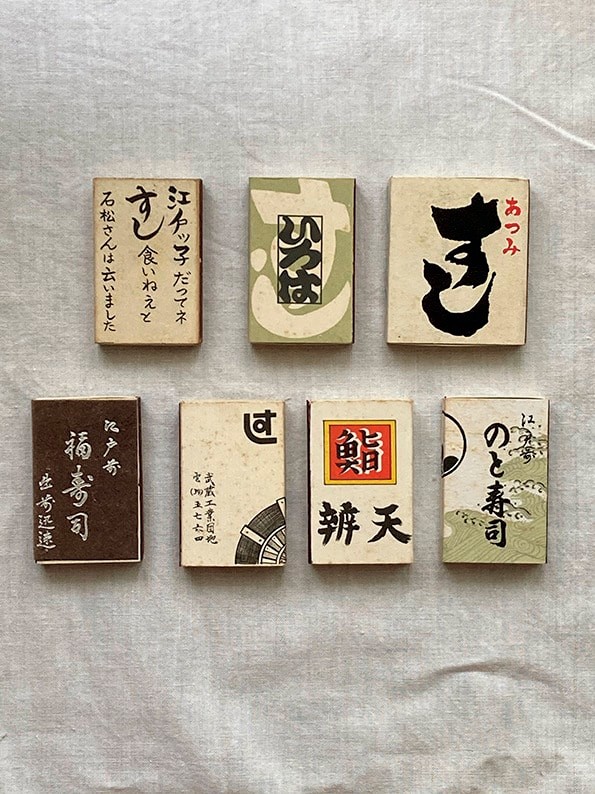 江戸ッ子だってネ
すし食いねえと
石松さんは云いました
すし
いろは
あつみ
すし
江戸前
福寿司
出前迅速
すし
武蔵工業団地
☎(99)五七六四
鮨
辨天
江戸前
のと寿司